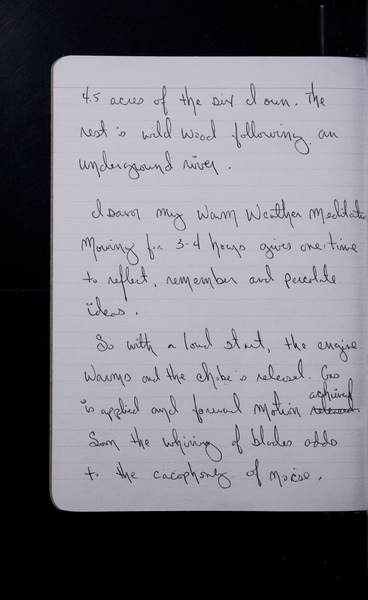 4.5 acres of the six I own. The
rest is wild wood following an
underground river.
I savor my Warm Weather Meditation
Moving for 3-4 hours gives one time
to reflect, remember and percolate
ideas.
So with a loud start, the engine
Warms and the choke is released. Gas
is applied and forward motion achieved
Soon the whining of blades adds
to the cacophony of noise.